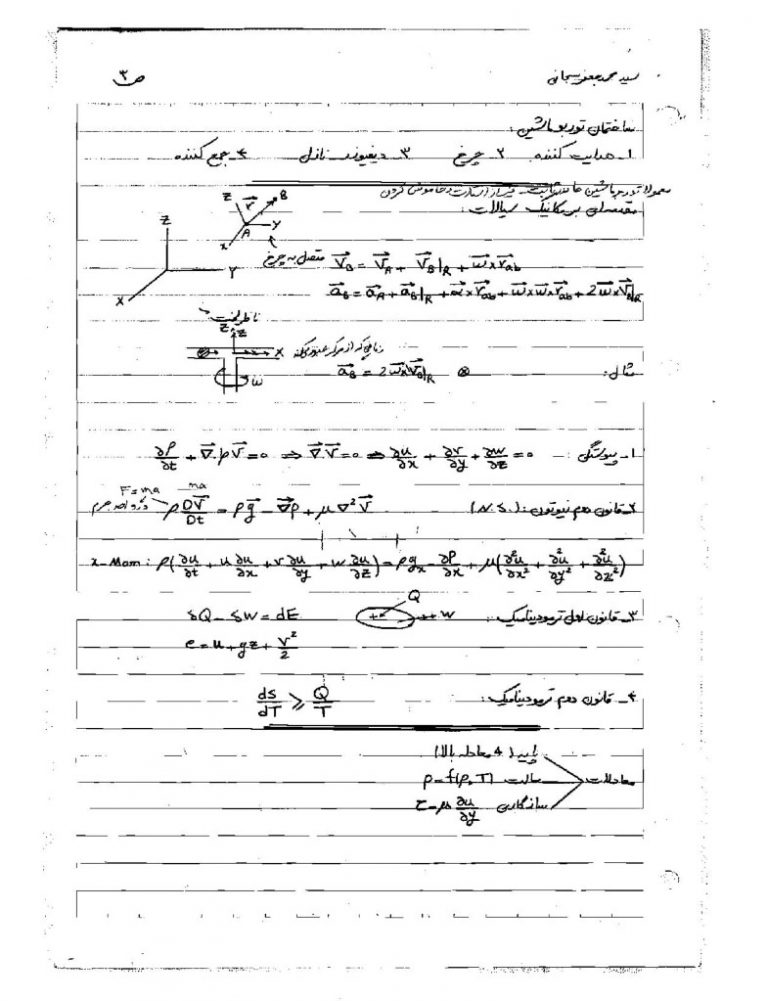 سید محمد جعفر سبحانی
ص ۳
ساختمان توربوماشین:
۱- هدایت کننده ۲- چرخ ۳- دیفیوزر نازل ۴- جمع کننده
معمولا توربوماشین ها غیر از استارت و خاموش کردن
مقدمه‌ای بر مکانیک سیالات:
Z r B
Z A y
x
Y
X
متصل به چرخ V_B = V_A + V_B|_R + ω×r_ab
a_B = a_A + a_B|_R + α×r_ab + ω×ω×r_ab + 2ω×V_B|_R
ناظر
Z Z
X زمانی که از مرکز عبور میکند
ω
مثال: a_B = 2ω×V_B|_R ⊗
۱- پیوستگی: ∂ρ/∂t + ∇.ρV = 0 ⇒ ∇.V = 0 ⇒ ∂u/∂x + ∂v/∂y + ∂w/∂z = 0
F = ma ma
۲- قانون دوم نیوتون: (N.S.) ρ DV/Dt = ρg - ∇p + μ∇²V
x-Mom: ρ(∂u/∂t + u ∂u/∂x + v ∂u/∂y + w ∂u/∂z) = ρg_x - ∂P/∂x + μ(∂²u/∂x² + ∂²u/∂y² + ∂²u/∂z²)
۳- قانون اول ترمودینامیک: Q +W δQ - δW = dE
e = u + gz + V²/2
۴- قانون دوم ترمودینامیک: ds/dT ≥ Q/T
پایه (4 معادله بالا)
معادلات حالت ρ = f(P,T)
سازگاری τ = μ ∂u/∂y